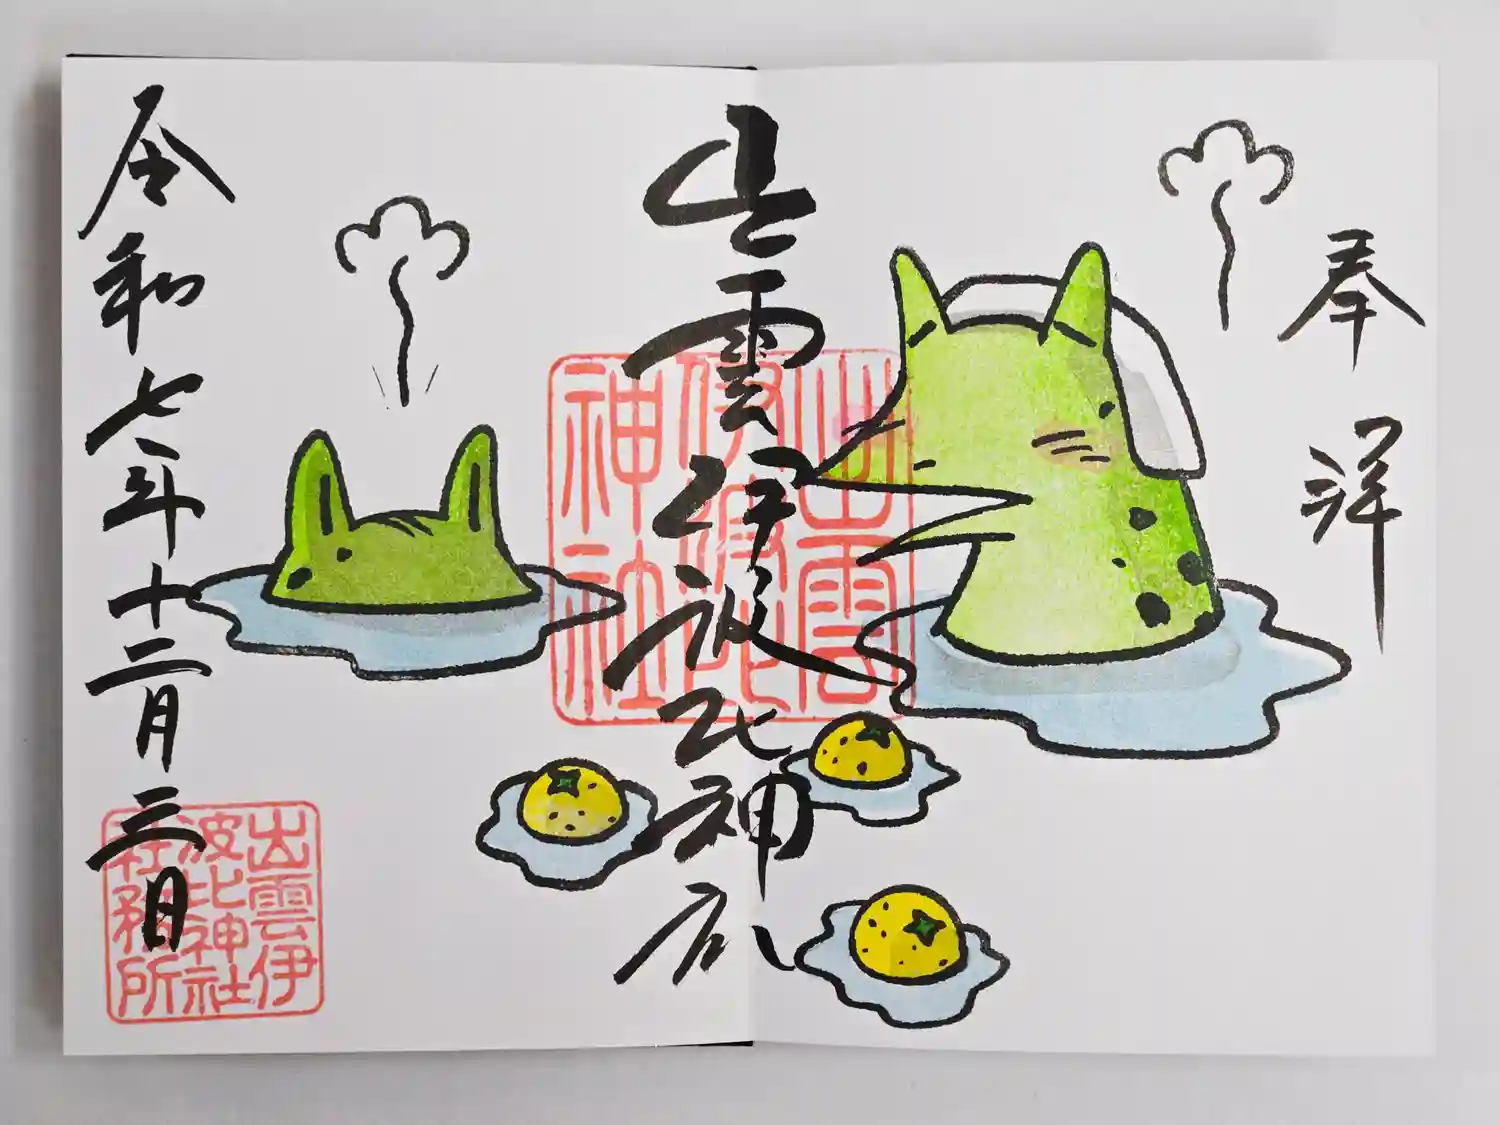 奉拝
出雲伊波比神社
出雲
伊波比
神社
令和七年十二月三日
出雲伊
波比神社
社務所